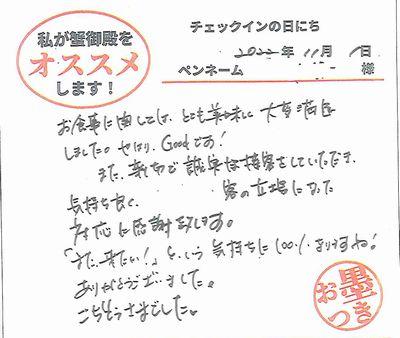 私が蟹御殿を
オススメ
します!
チェックインの日にち
2022年 11月 1日
ペンネーム 様
お食事に関しては、とても美味しく 大変満足
しました。やはり、Goodです!
また、親切で 誠実な接客をしていただき、
気持ち良く、 客の立場になった
対応に感謝致します。
「また、来たい!」という 気持ちに100%なりますね!
ありがとうございました。
ごちそうさまでした。
お墨つき